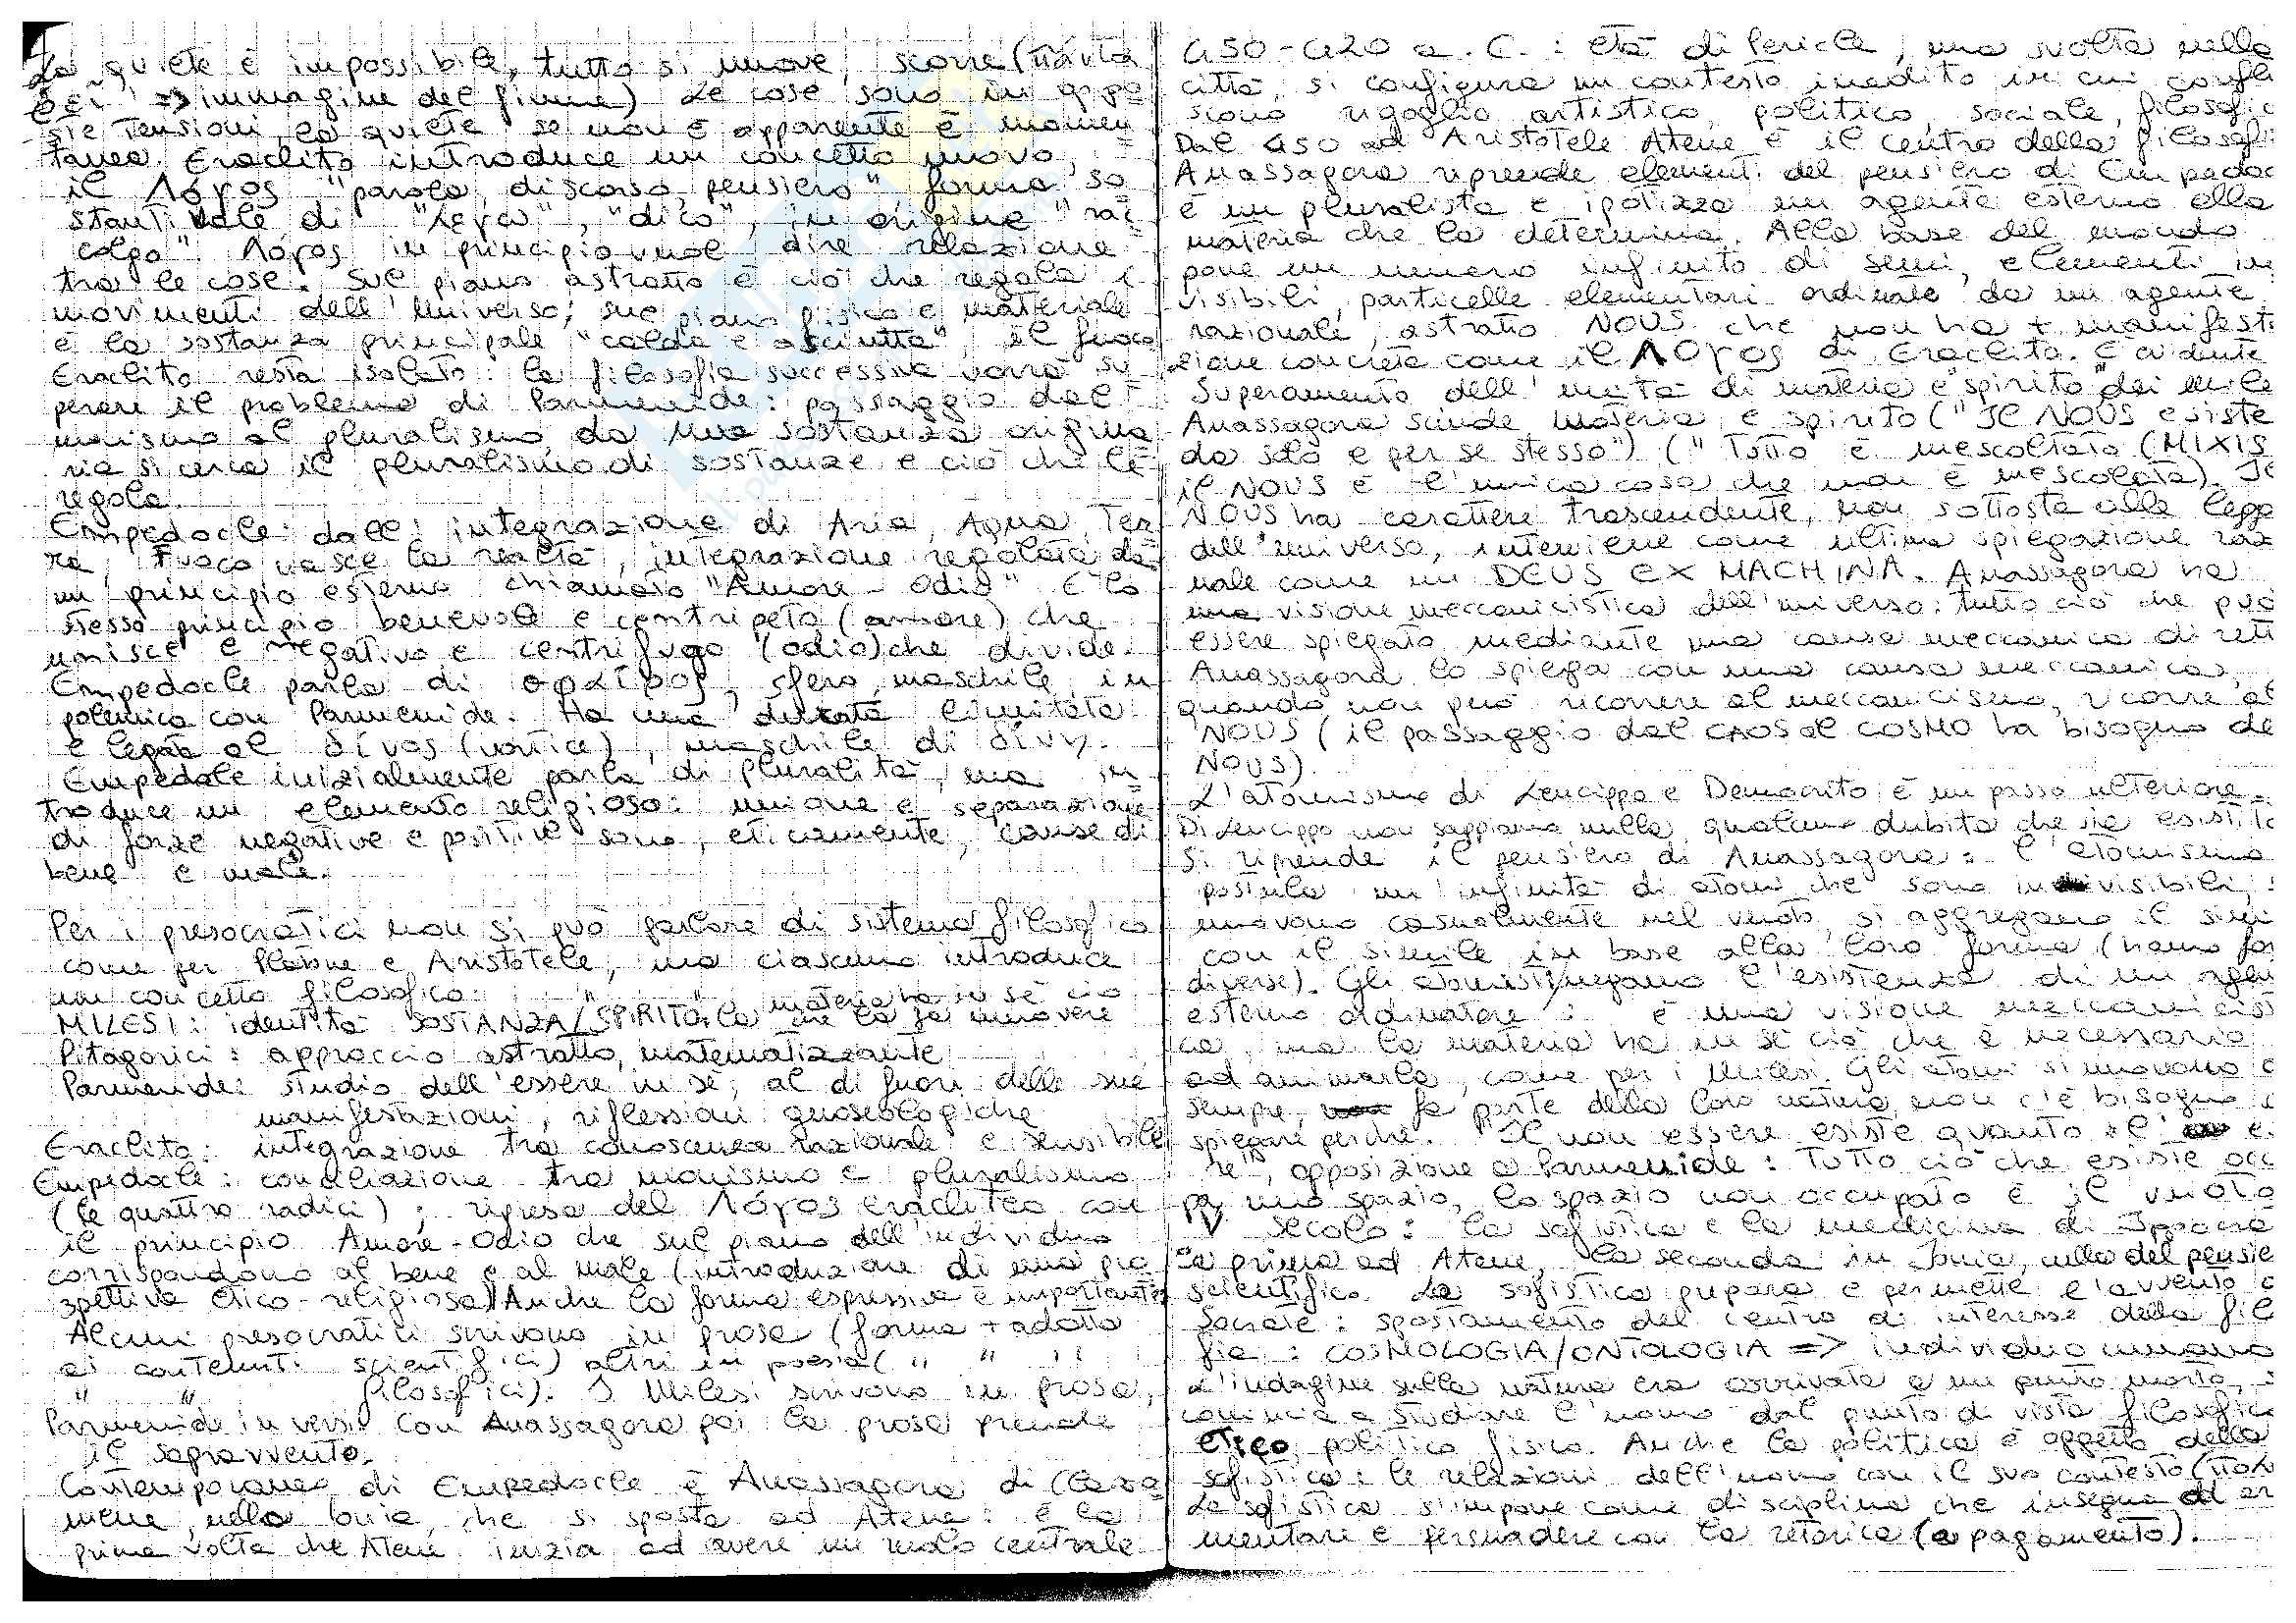 La quiete è impossibile, tutto si muove, scorre (πάντα
ῥεῖ => immagine del fiume) Le cose sono in oppo
ste tensioni, la quiete se non è apparente è momen
tanea. Eraclito introduce un concetto nuovo,
il Λόγος "parola, discorso, pensiero" forma so
stantivale di "λεγω", "dico", in origine "rac
colgo". Λογος in principio vuol dire relazione
tra le cose. Sul piano astratto è ciò che regola i
movimenti dell'Universo; sul piano fisico e materiale
è la sostanza principale "calda e asciutta", il fuoco
Eraclito resta isolato: la filosofia successiva vorrà su
perare il problema di Parmenide: passaggio dal
monismo al pluralismo, da una sostanza origina
ria si cerca il pluralismo di sostanze e ciò che le
regola.
Empedocle: dall'integrazione di Aria, Aqua, Ter
ra, Fuoco nasce la realtà, integrazione regolata da
un principio esterno chiamato "Amore-Odio" È lo
stesso principio benevolo e centripeto (amore) che
unisce e negativo e centrifugo (odio) che divide.
Empedocle parla di σφαῖρος, sfera, maschile, in
polemica con Parmenide. Ha una durata limitata
e legata al δίνος (vortice), maschile di δίνη.
Empedocle inizialmente parla di pluralità, ma in
troduce un elemento religioso: unione e separazione
di forze negative e positive sono, eticamente, cause di
bene e male.
Per i presocratici non si può parlare di sistema filosofico
come per Platone e Aristotele, ma ciascuno introduce
un concetto filosofico:
MILESI: identità SOSTANZA/"SPIRITO": la materia ha in sé ciò che la fa muovere
Pitagorici: approccio astratto, matematizzante
Parmenide: studio dell'essere in sé, al di fuori delle sue
manifestazioni, riflessioni gnoseologiche
Eraclito: integrazione tra conoscenza razionale e sensibile
Empedocle: conciliazione tra monismo e pluralismo
(le quattro radici); ripresa del Λόγος eracliteo con
il principio Amore-Odio che sul piano dell'individuo
corrispondono al bene e al male (introduzione di una pro
spettiva etico-religiosa) Anche la forma espressiva è importante
Alcuni presocratici scrivono in prosa (forma + adatta
ai contenuti scientifici) altri in poesia ( " " "
" " filosofici). I Milesi scrivono in prosa,
Parmenide in versi. Con Anassagora poi la prosa prende
il sopravvento.
Contemporaneo di Empedocle è Anassagora di Clazo
mene, nella Ionia, che si sposta ad Atene: è la
prima volta che Atene inizia ad avere un ruolo centrale
450-420 a.C.: età di Pericle, una svolta nella
città, si configura un contesto inedito in cui conflui
scono rigoglio artistico, politico, sociale, filosofic
Dal 450 ad Aristotele Atene è il centro della filosofi
Anassagora riprende elementi del pensiero di Empedoc
è un pluralista e ipotizza un agente esterno alla
materia che la determina. Alla base del mondo
pone un numero infinito di semi, elementi in
visibili, particelle elementari ordinate da un agente
razionale, astratto NOUS che non ha + manifesta
zione concreta come il ΛΟγος di Eraclito. È evidente
Superamento dell'unità di materia e "spirito" dei Mile
Anassagora scinde materia e spirito ("Il NOUS esiste
da solo e per se stesso") ("Tutto è mescolato (MIXIS
il NOUS è l'unica cosa che non è mescolata). Il
NOUS ha carattere trascendente, non sottostà alle legg
dell'universo, interviene come ultima spiegazione raz
nale come un DEUS EX MACHINA. Anassagora ha
una visione meccanicistica dell'universo: tutto ciò che può
essere spiegato mediante una causa meccanica diretta
Anassagora lo spiega con una causa meccanica,
quando non può ricorrere al meccanicismo, ricorre al
NOUS (il passaggio dal CAOS al COSMO ha bisogno de
NOUS).
L'atomismo di Leucippo e Democrito è un passo ulteriore.
Di Leucippo non sappiamo nulla, qualcuno dubita che sia esistito
Si riprende il pensiero di Anassagora: l'atomismo
postula un'infinità di atomi che sono indivisibili, s
muovono casualmente nel vuoto, si aggregano il simi
con il simile in base alla loro forma (hanno for
diverse). Gli atomisti negano l'esistenza di un agen
esterno ordinatore: è una visione meccanicist
ca, ma la materia ha in sé ciò che è necessario
ad animarla, come per i Milesi. Gli atomi si muovono d
sempre, fa parte della loro natura, non c'è bisogno d
spiegare perché. "Il non essere esiste quanto l'es
re", opposizione a Parmenide: Tutto ciò che esiste occ
pa uno spazio, lo spazio non occupato è il vuoto
V secolo: la sofistica e la medicina di Ippocra
la prima ad Atene, la seconda in Ionia, culla del pensie
scientifico. La sofistica prepara e permette l'avvento d
Socrate: spostamento del centro di interesse della filo
fia: COSMOLOGIA/ONTOLOGIA => individuo umano
L'indagine sulla natura era arrivata a un punto morto, s
comincia a studiare l'uomo dal punto di vista filosofico
etico, politico, fisico. Anche la politica è oggetto della
sofistica: le relazioni dell'uomo con il suo contesto
La sofistica si impone come disciplina che insegna ad ar
mentare e persuadere con la retorica (a pagamento).